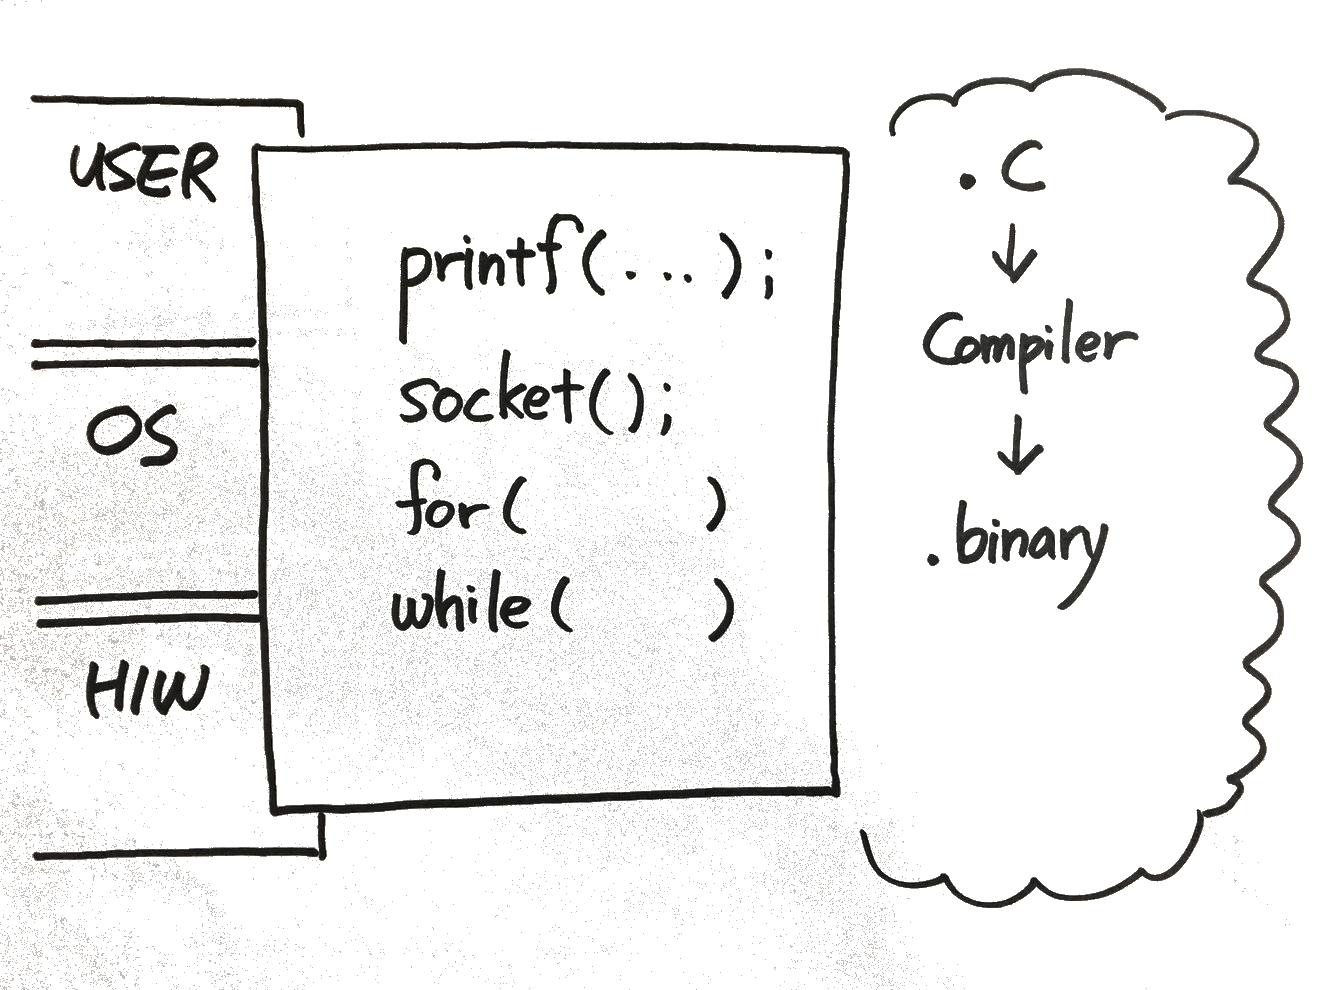 USER
OS
H/W
printf(...);
socket();
for( )
while( )
.C
↓
Compiler
↓
.binary